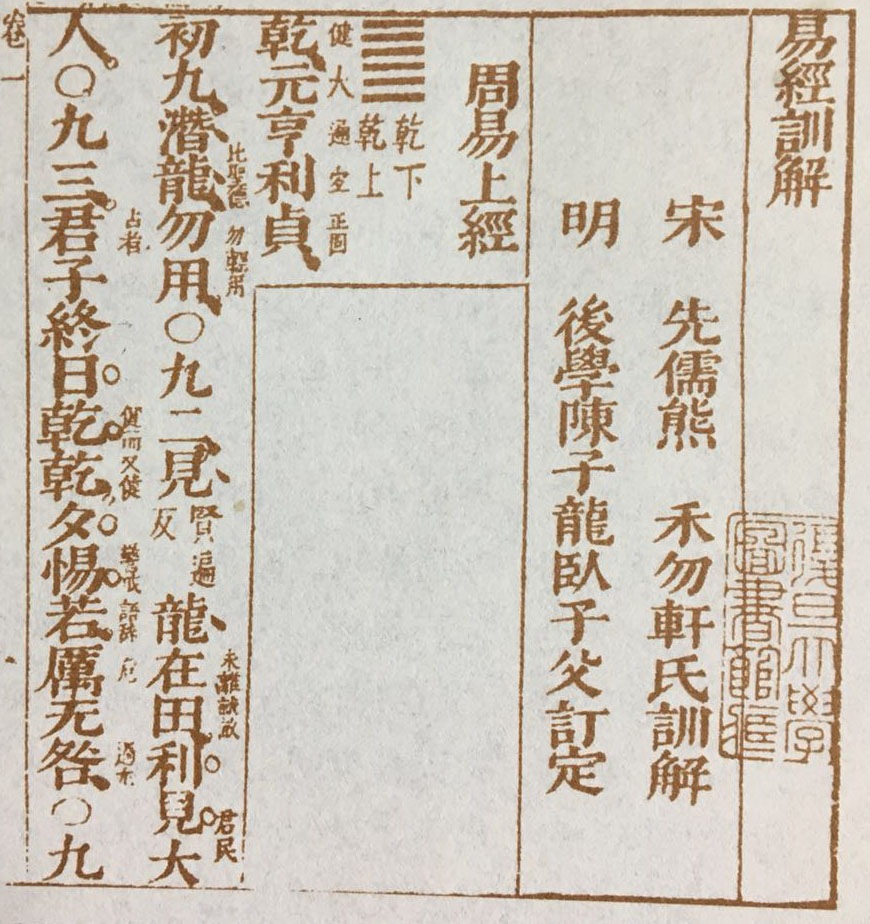 易經訓解
宋 先儒熊 禾勿軒氏訓解
明 後學陳子龍臥子父訂定
周易上經
乾下
乾上
健大通宜正固
乾元亨利貞
比聖德 勿輕用 未離 君民
初九潛龍勿用○九二見賢遍反龍在田利見大
占者 健而又健 警戒 語辭 危 過
人○九三君子終日乾乾夕惕若厲无咎○九
卷一
復旦大學
圖書館